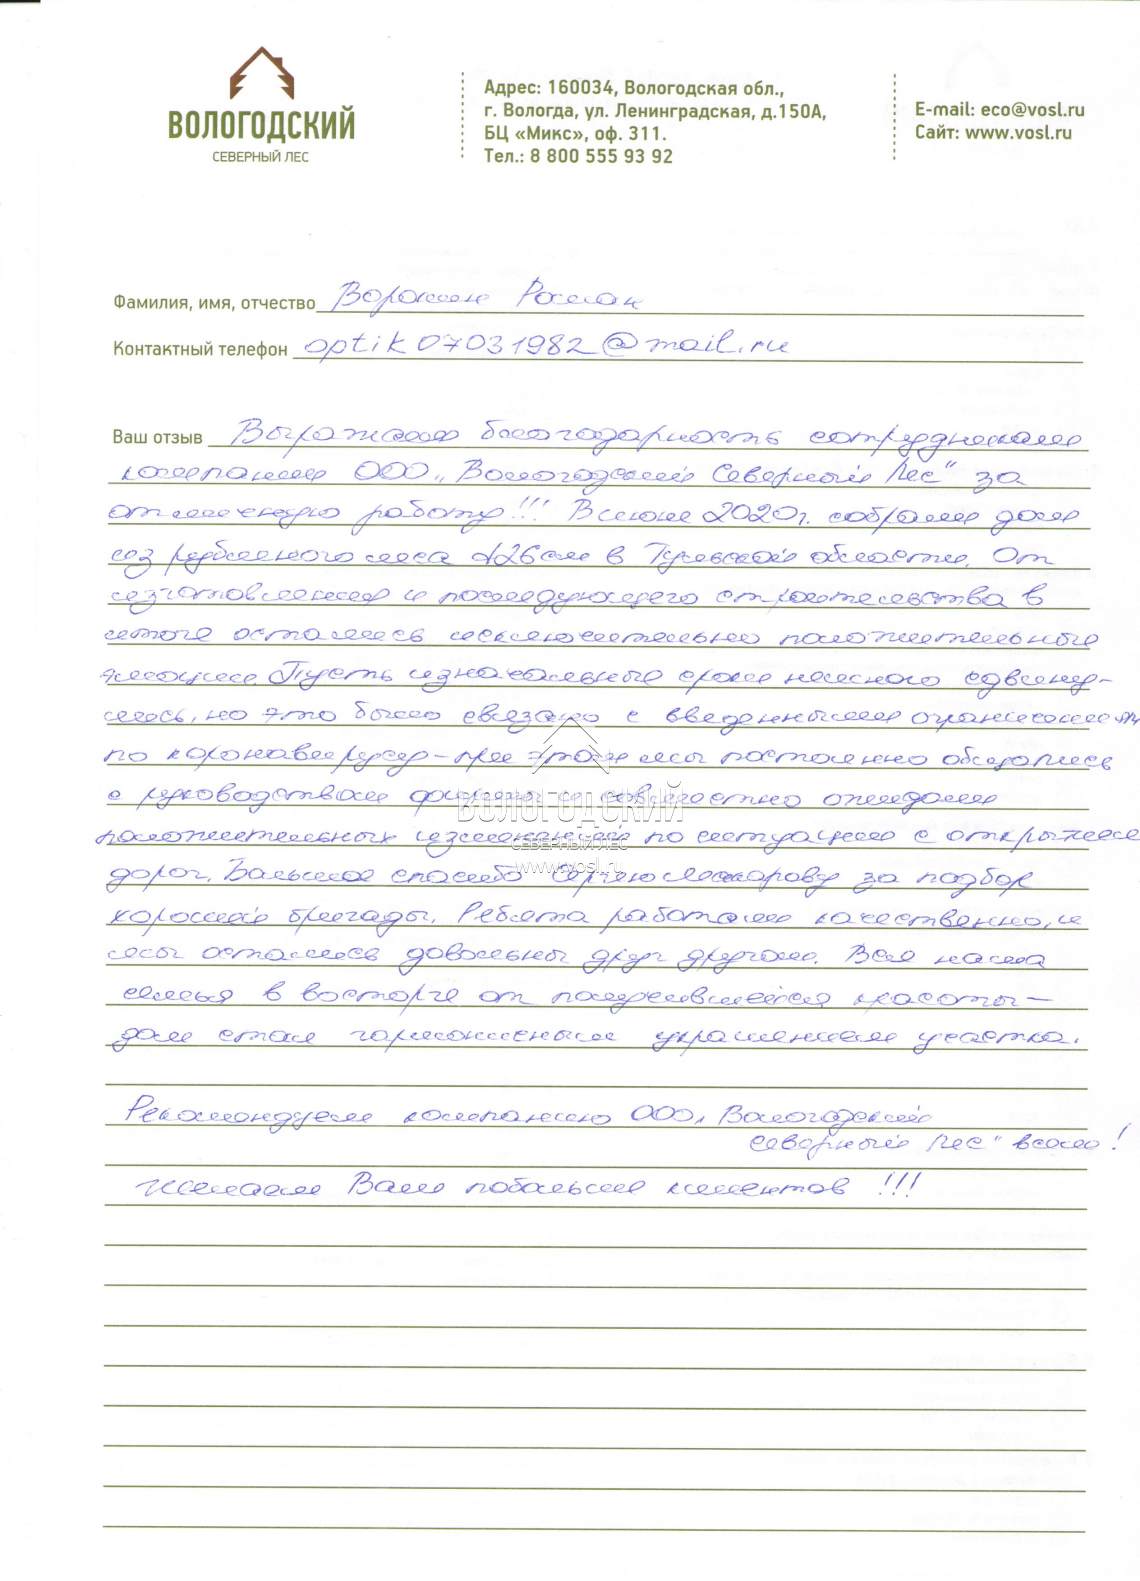 ВОЛОГОДСКИЙ
СЕВЕРНЫЙ ЛЕС
Адрес: 160034, Вологодская обл.,
г. Вологда, ул. Ленинградская, д.150А,
БЦ «Микс», оф. 311.
Тел.: 8 800 555 93 92
E-mail: eco@vosl.ru
Сайт: www.vosl.ru
Фамилия, имя, отчество Роман
Контактный телефон optik07031982@mail.ru
Ваш отзыв Выражаем благодарность сотрудникам
компании ООО "Вологодский Северный Лес" за
отличную работу!!! В июне 2020г. собрали дом
из рубленного леса ⌀26см в Тульской области. От
изготовления и последующего строительства в
итоге остались исключительно положительные
эмоции. Пусть изначальные сроки немного сдвину-
лись, но это было связано с введенными ограничениями
по коронавирусу - при этом мы постоянно общались
с руководством фирмы и совместно ожидали
положительных изменений по ситуации с открытием
дорог. Большое спасибо Сергею за подбор
хорошей бригады. Ребята работали качественно, и
мы остались довольны друг другом. Вся наша
семья в восторге от получившейся красоты -
дом стал гармоничным украшением участка.
Рекомендуем компанию ООО "Вологодский
северный лес" всем!
Желаем Вам побольше клиентов !!!
ВОЛОГОДСКИЙ
СЕВЕРНЫЙ ЛЕС
www.vosl.ru